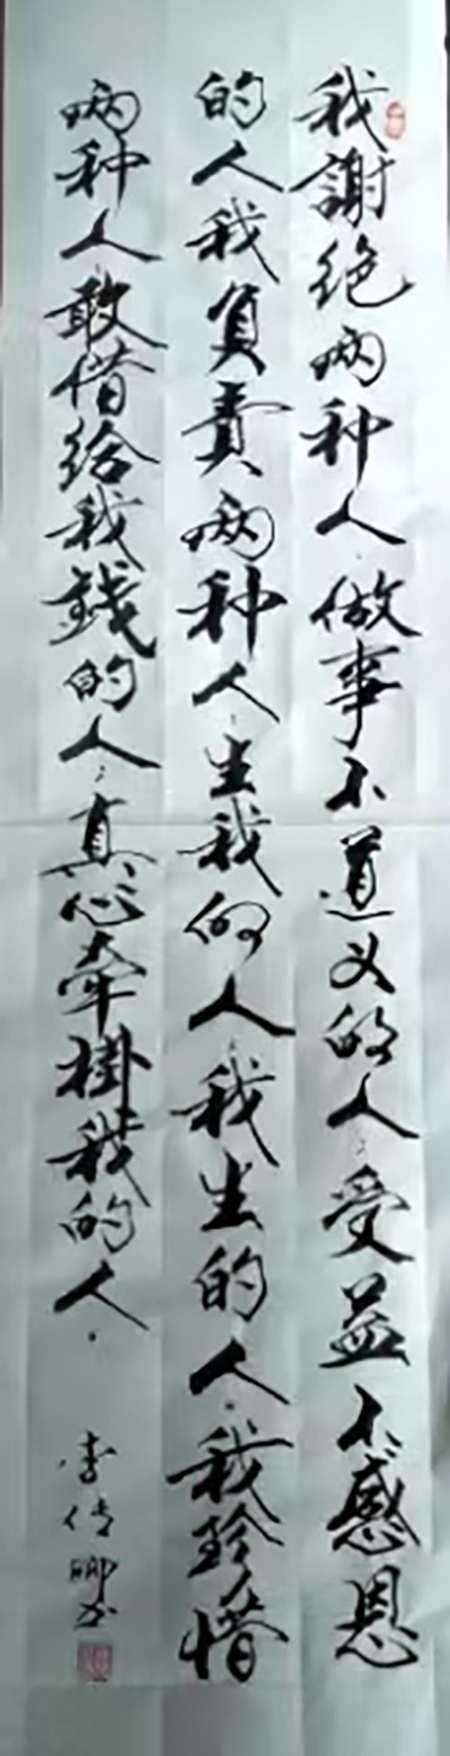 我謝绝两种人.做事不道义的人;受益不感恩
的人我負責两种人;生我的人;我生的人.我珍惜
两种人敢借给我錢的人;真心牵掛我的人.
李传卿书